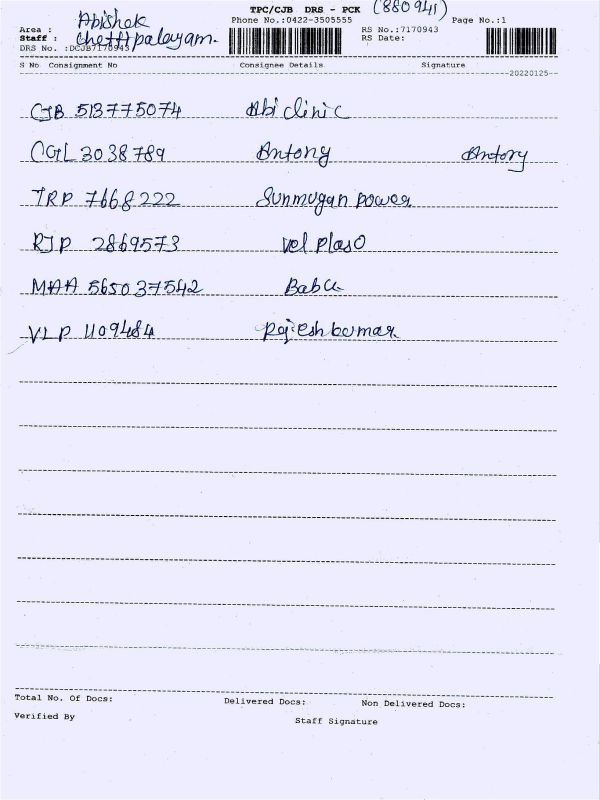 TPC/CJB DRS - PCK (880941)
Area : Abishek
Phone No.:0422-3505555
Page No.:1
Staff : Chettipalayam.
RS No.:7170943
RS Date:
DRS No. :DCJB7170943
S No Consignment No Consignee Details Signature
20220125
CJB 513775074 Abi clinic
CGL 3038789 Antony Antony
TRP 7668222 Sunmugan power
RJP 2869573 vel plaso
MAA 565037542 Babu
VLP 1109484 Rajeshkumar
Total No. Of Docs: Delivered Docs: Non Delivered Docs:
Verified By Staff Signature